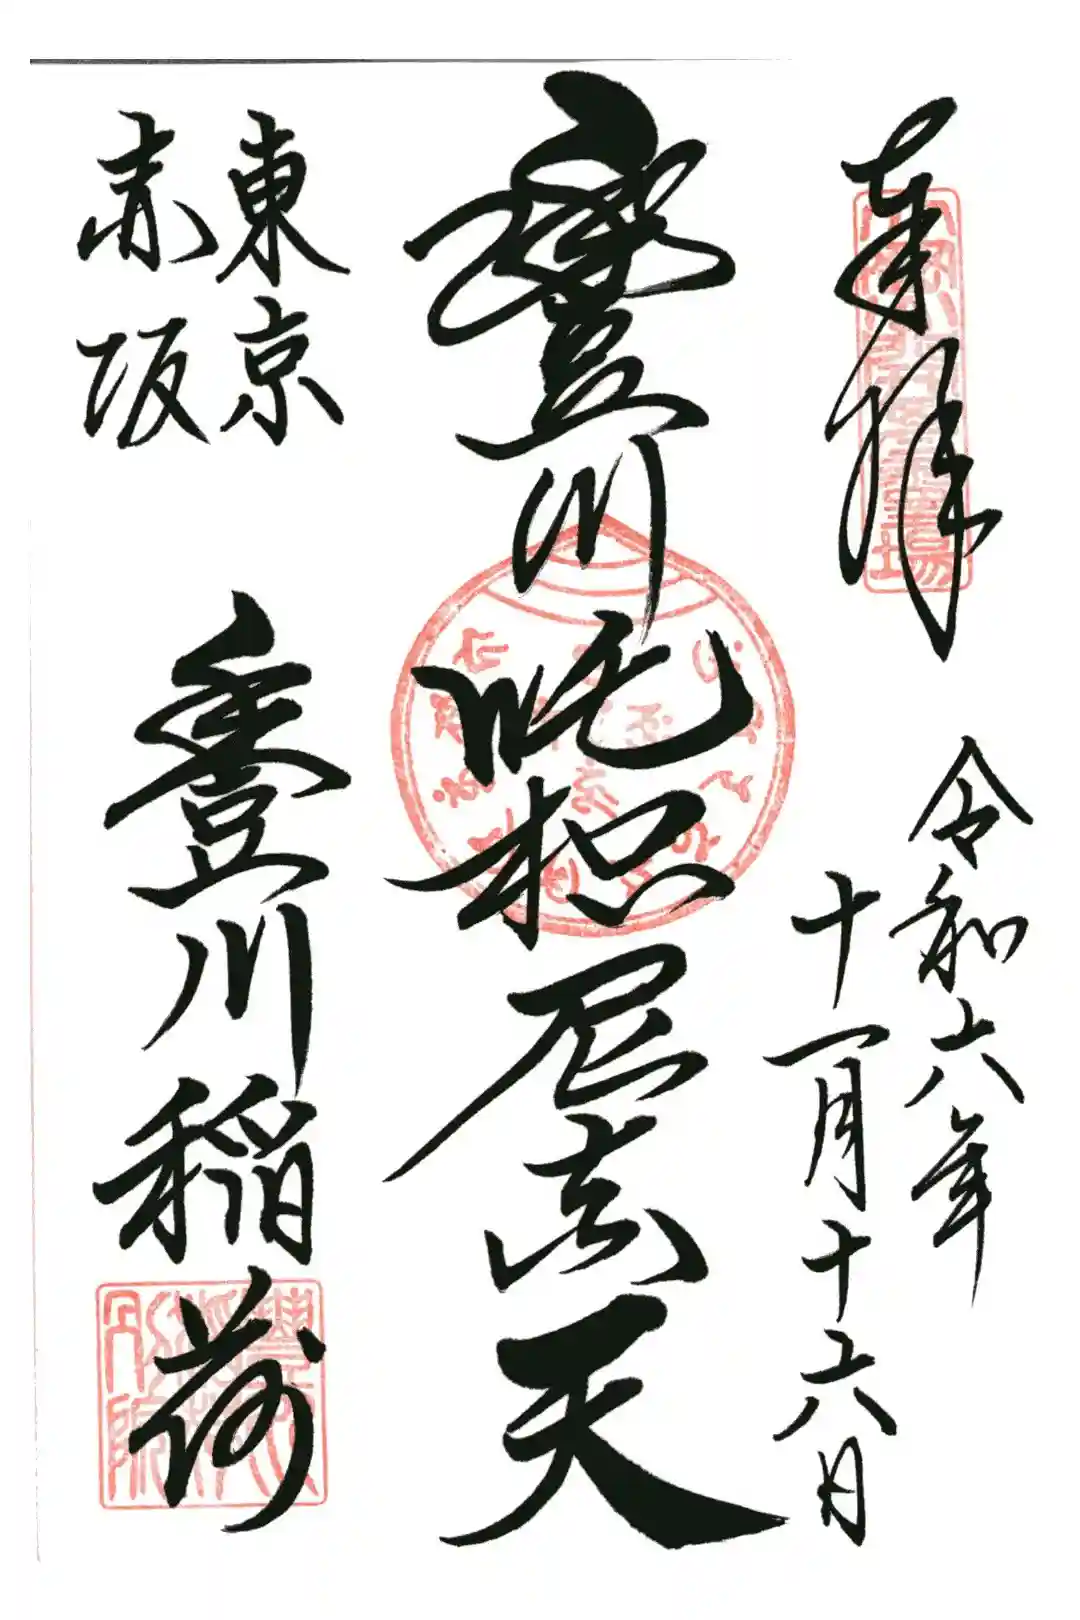 奉拝
令和六年
十一月十六日
豐川吒枳尼真天
東京
赤坂
豊川稲荷